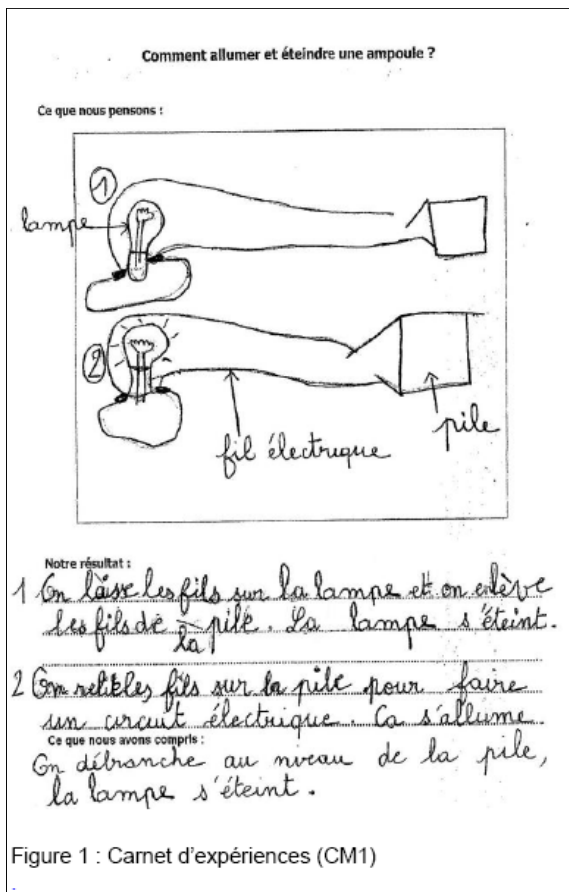 Comment allumer et éteindre une ampoule ?
Ce que nous pensons :
1
lampe
2
fil électrique
pile
Notre résultat :
1 On laisse les fils sur la lampe et on enlève
les fils de la pile. La lampe s'éteint.
2 On les fils sur la pile pour faire
un circuit électrique. Ca s'allume.
Ce que nous avons compris :
On débranche au niveau de la pile,
la lampe s'éteint.
Figure 1 : Carnet d'expériences (CM1)